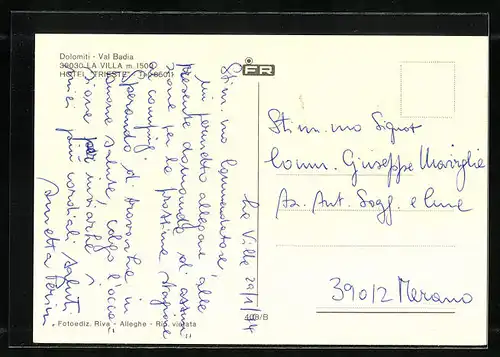 Dolomiti - Val Badia
39030 LA VILLA m. 1500
HOTEL "TRIESTE" - Tel. 85011
La Villa 29/1/74
Stim.mo Commendatore,
mi permetto allegare alla
presente domanda di assun
zione per la prossima stagione
a camping.
Sperando di trovarla in
buona salute, colgo l'occa
sione per inviarle i
miei più cordiali saluti.
Annetta
FR
Stim.mo Signor
Comm. Giuseppe
Az. Aut. Sogg. e Cure
39012 Merano
Fotoediz. Riva - Alleghe - Rip. vietata
408/B